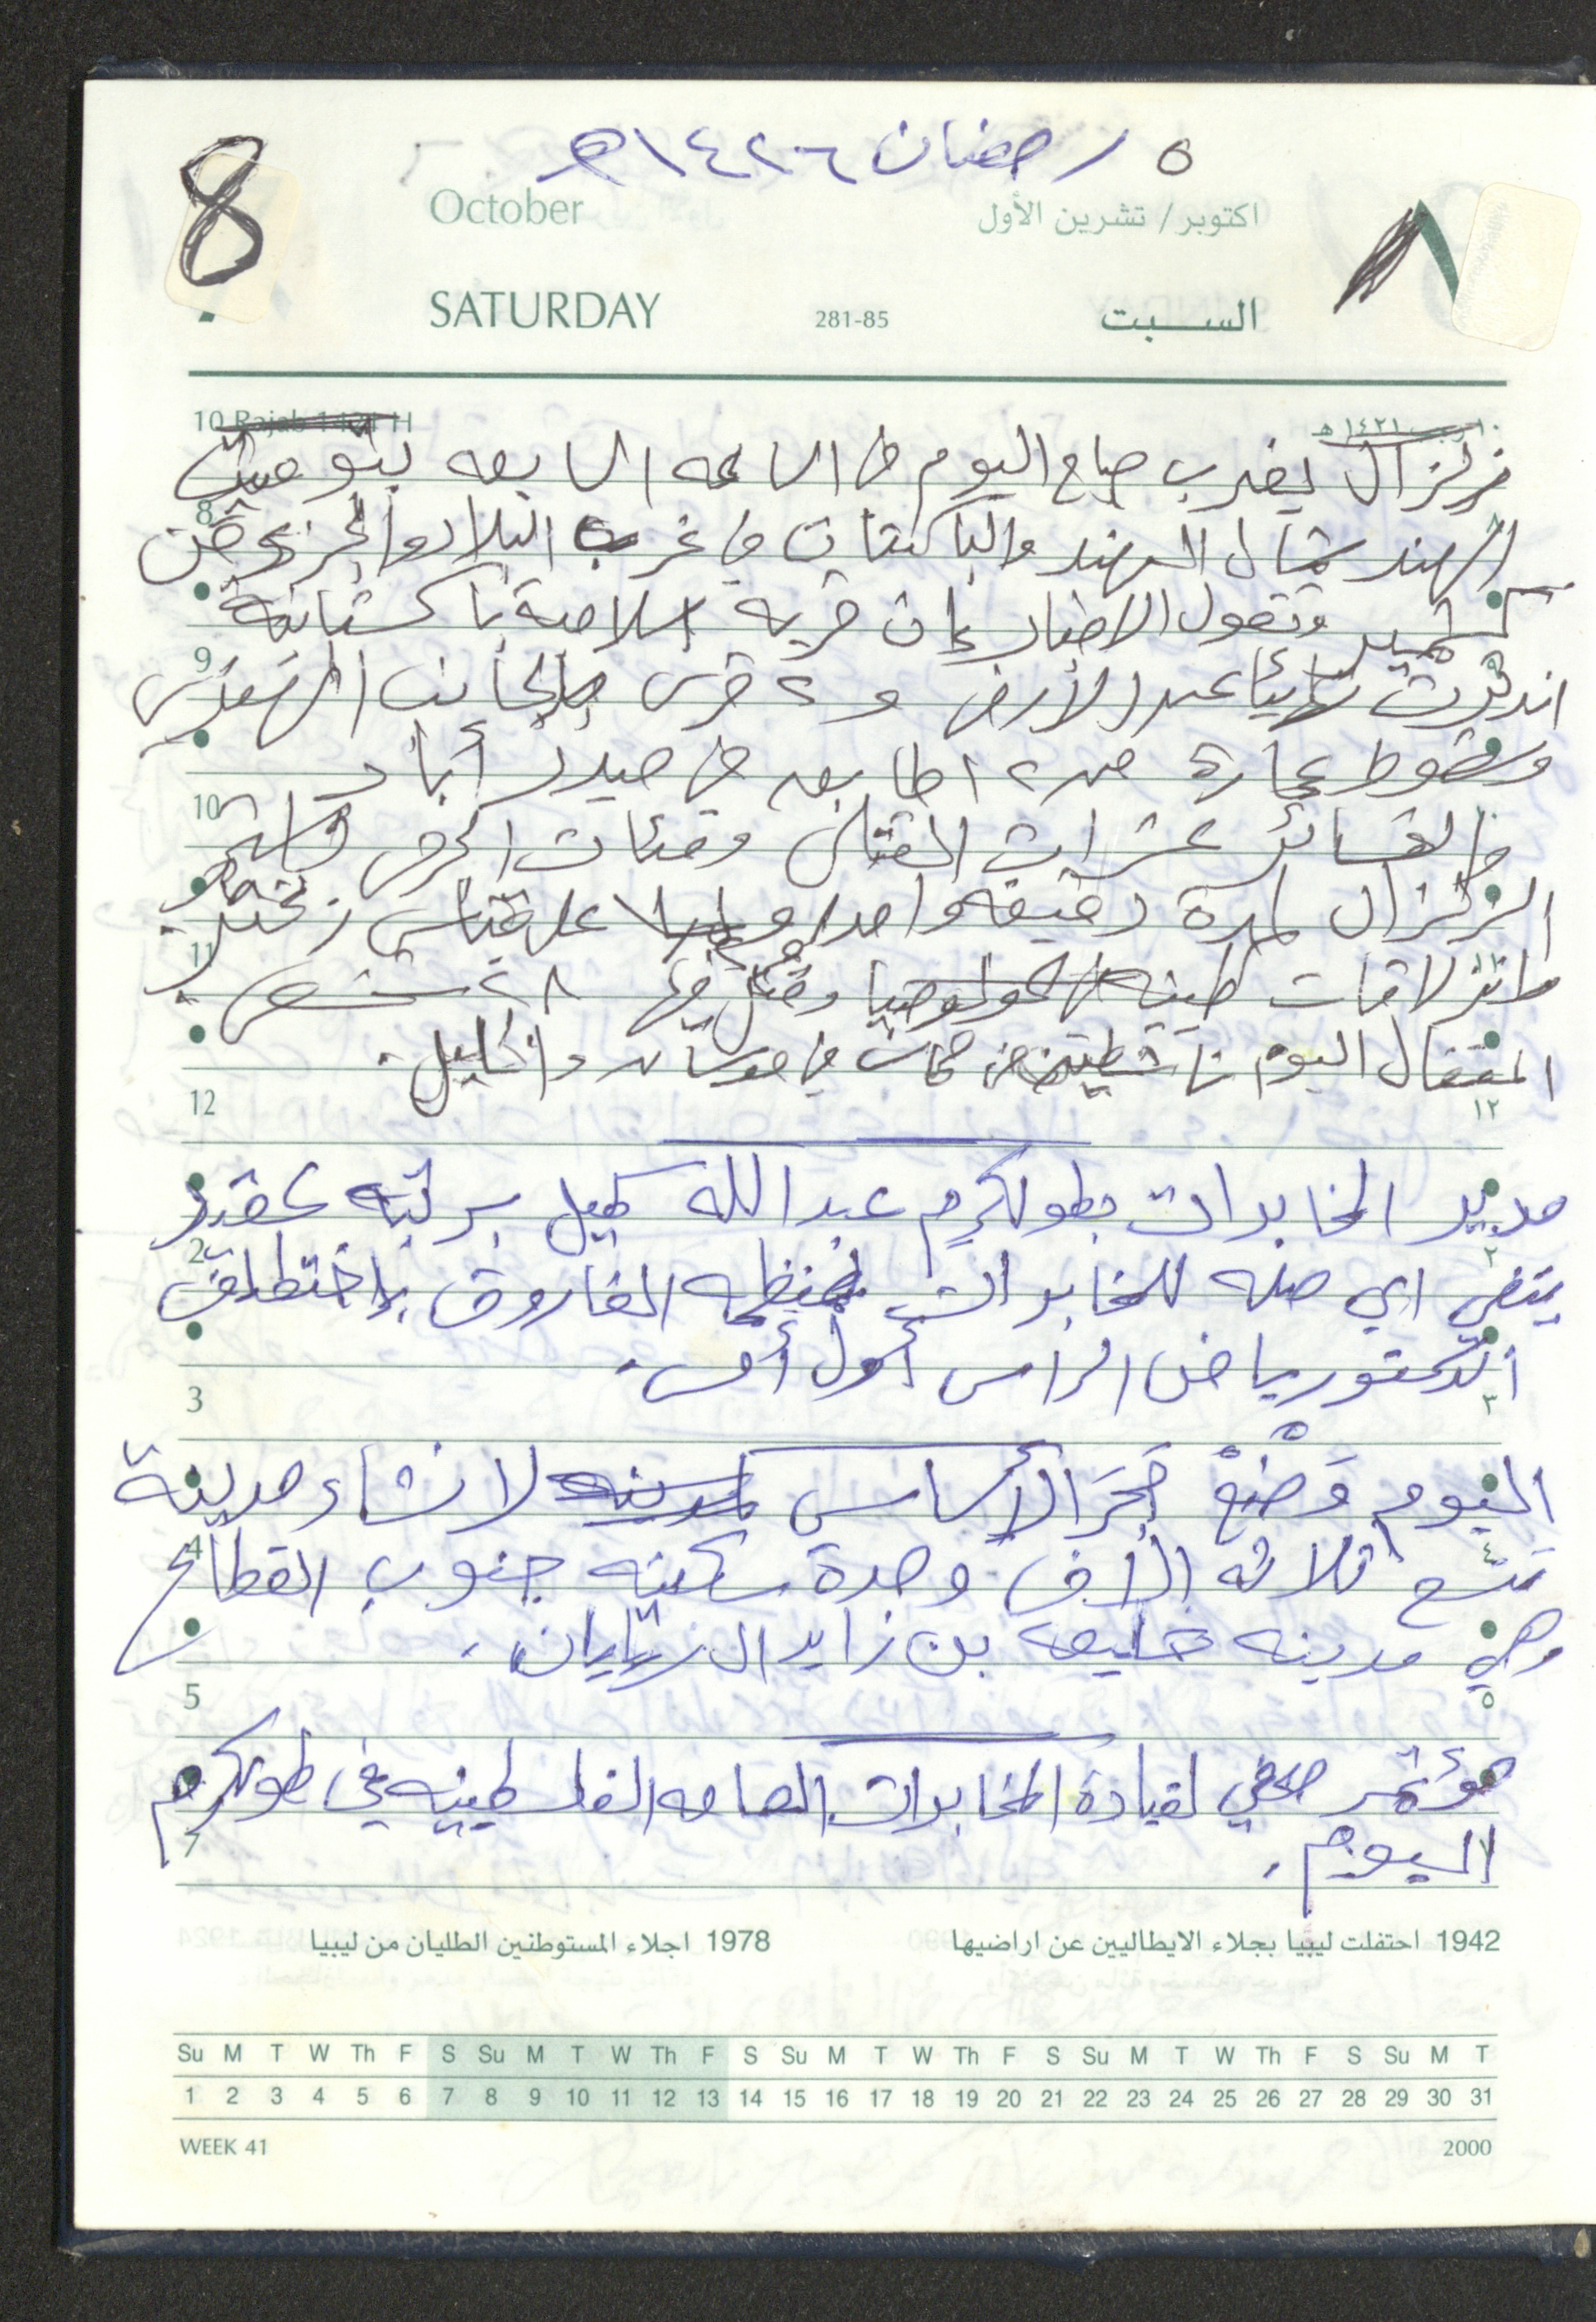 ٥ رمضان ١٤٢٦ هـ
8
October
اكتوبر / تشرين الأول
٨
SATURDAY
281-85
الســبت
10 Rajab 1421 H
١٠ رجب ١٤٢١ هـ
زلزال يضرب صباح اليوم في الساعه السابعه بتوقيت
الهند شمال الهند والباكستان في غرب البلاد والجزء من
كشمير وتقول الاخبار بان قريه اسلامية باكستانية
اندثرت نهائياً عند الأرض و ٢ قرى بالجانب الهندي
وسقوط عمارة من ٢١ طابق في حيدر أباد
والخسائر عشرات القتلى ومئات الجرحى واستمر
الزلزال لمدة دقيقه واحده على مقياس رختر
وانزلاقات طينيه وقتل فيها ٢٨ شخص
اعتقال اليوم ناشطين من حماس في والخليل .
مدير المخابرات بطولكرم عبدالله كميل برتبه عقيد
ينفي اي صله للمخابرات بمنظمه الفاروق باختطاف
الدكتور رياض الراس أول أمس .
اليوم وَضْعْ حَجَر الأساسي لمدينه لانشاء مدينة
تتسع ثلاثه الآف وحدة سكنيه جنوب القطاع
وهي مدينه خليفه بن زايد ال نهايان .
مؤتمر صحفي لقيادة المخابرات العامه الفلسطينيه في طولكرم
اليوم .
8
9
10
11
12
١٢
2
٢
3
٣
4
٤
5
٥
7
1942 احتفلت ليبيا بجلاء الايطاليين عن اراضيها
1978 اجلاء المستوطنين الطليان من ليبيا
Su M T W Th F S Su M T W Th F S Su M T W Th F S Su M T W Th F S Su M T
1 2 3 4 5 6 7 8 9 10 11 12 13 14 15 16 17 18 19 20 21 22 23 24 25 26 27 28 29 30 31
WEEK 41
2000